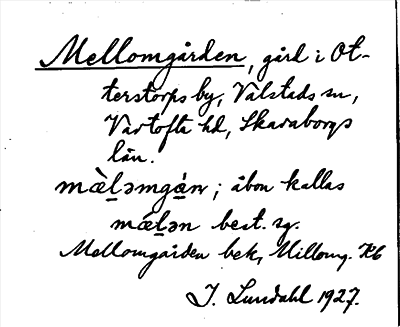 Mellomgården, gård i Ot-
terstorps by, Valstads sn,
Vartofta hd, Skaraborgs
län.
mæ̀l̠əmgá̠ɳ; åbon kallas
mǽl̠ən best. sg.
Mellomgården bek, Millomg. Kb
J. Lundahl 1927.